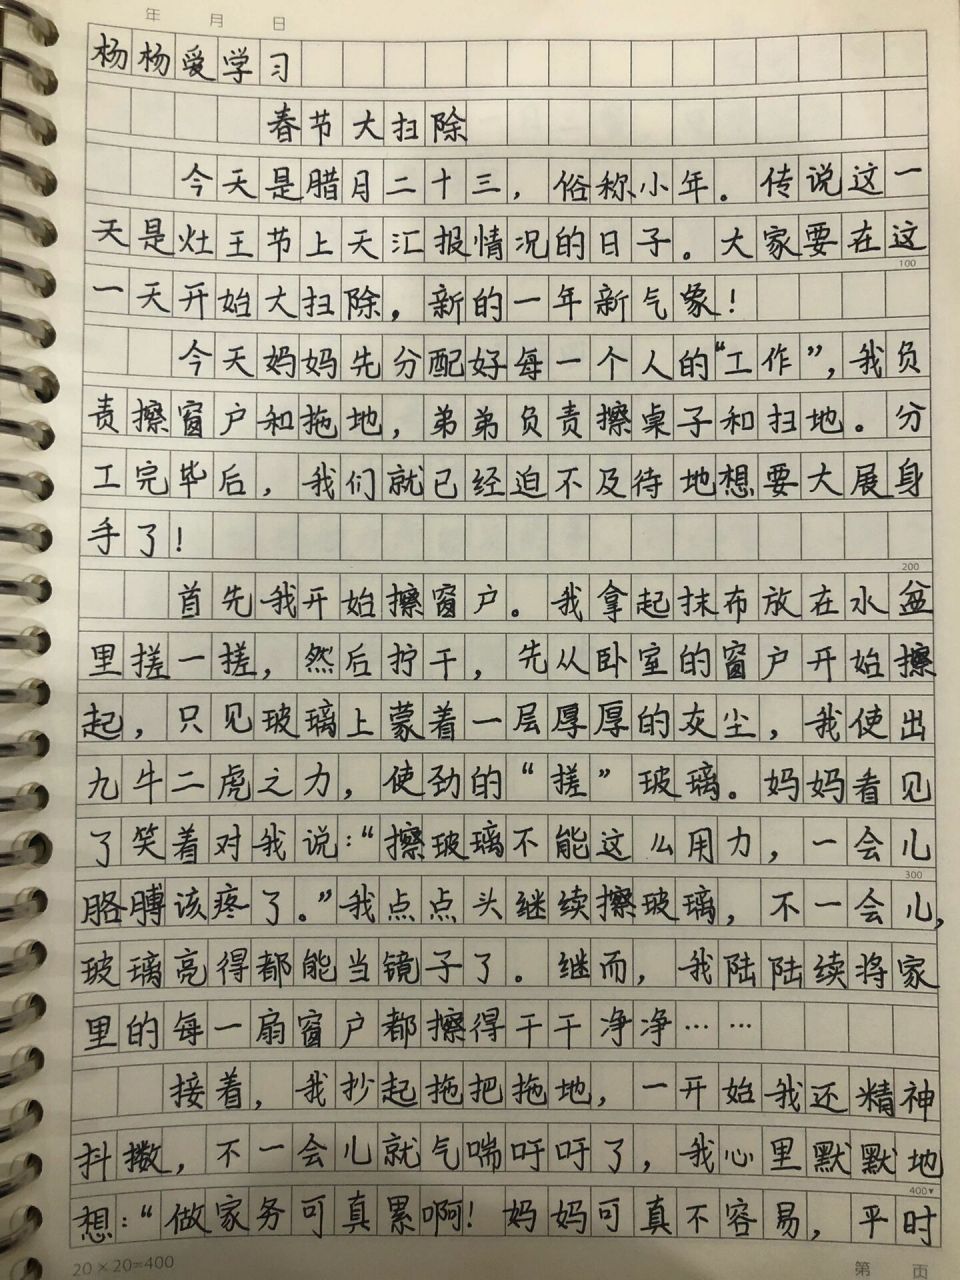 年 月 日
杨杨爱学习
春节大扫除
今天是腊月二十三，俗称小年。传说这一
天是灶王节上天汇报情况的日子。大家要在这
100
一天开始大扫除，新的一年新气象！
今天妈妈先分配好每一个人的“工作”，我负
责擦窗户和拖地，弟弟负责擦桌子和扫地。分
工完毕后，我们就已经迫不及待地想要大展身
手了！
200
首先我开始擦窗户。我拿起抹布放在水盆
里搓一搓，然后拧干，先从卧室的窗户开始擦
起，只见玻璃上蒙着一层厚厚的灰尘，我使出
九牛二虎之力，使劲的“搓”玻璃。妈妈看见
了笑着对我说：“擦玻璃不能这么用力，一会儿
300
胳膊该疼了。”我点点头继续擦玻璃，不一会儿，
玻璃亮得都能当镜子了。继而，我陆陆续将家
里的每一扇窗户都擦得干干净净……
接着，我抄起拖把拖地，一开始我还精神
抖擞，不一会儿就气喘吁吁了，我心里默默地
400▼
想：“做家务可真累啊！妈妈可真不容易，平时
20×20=400 第 页